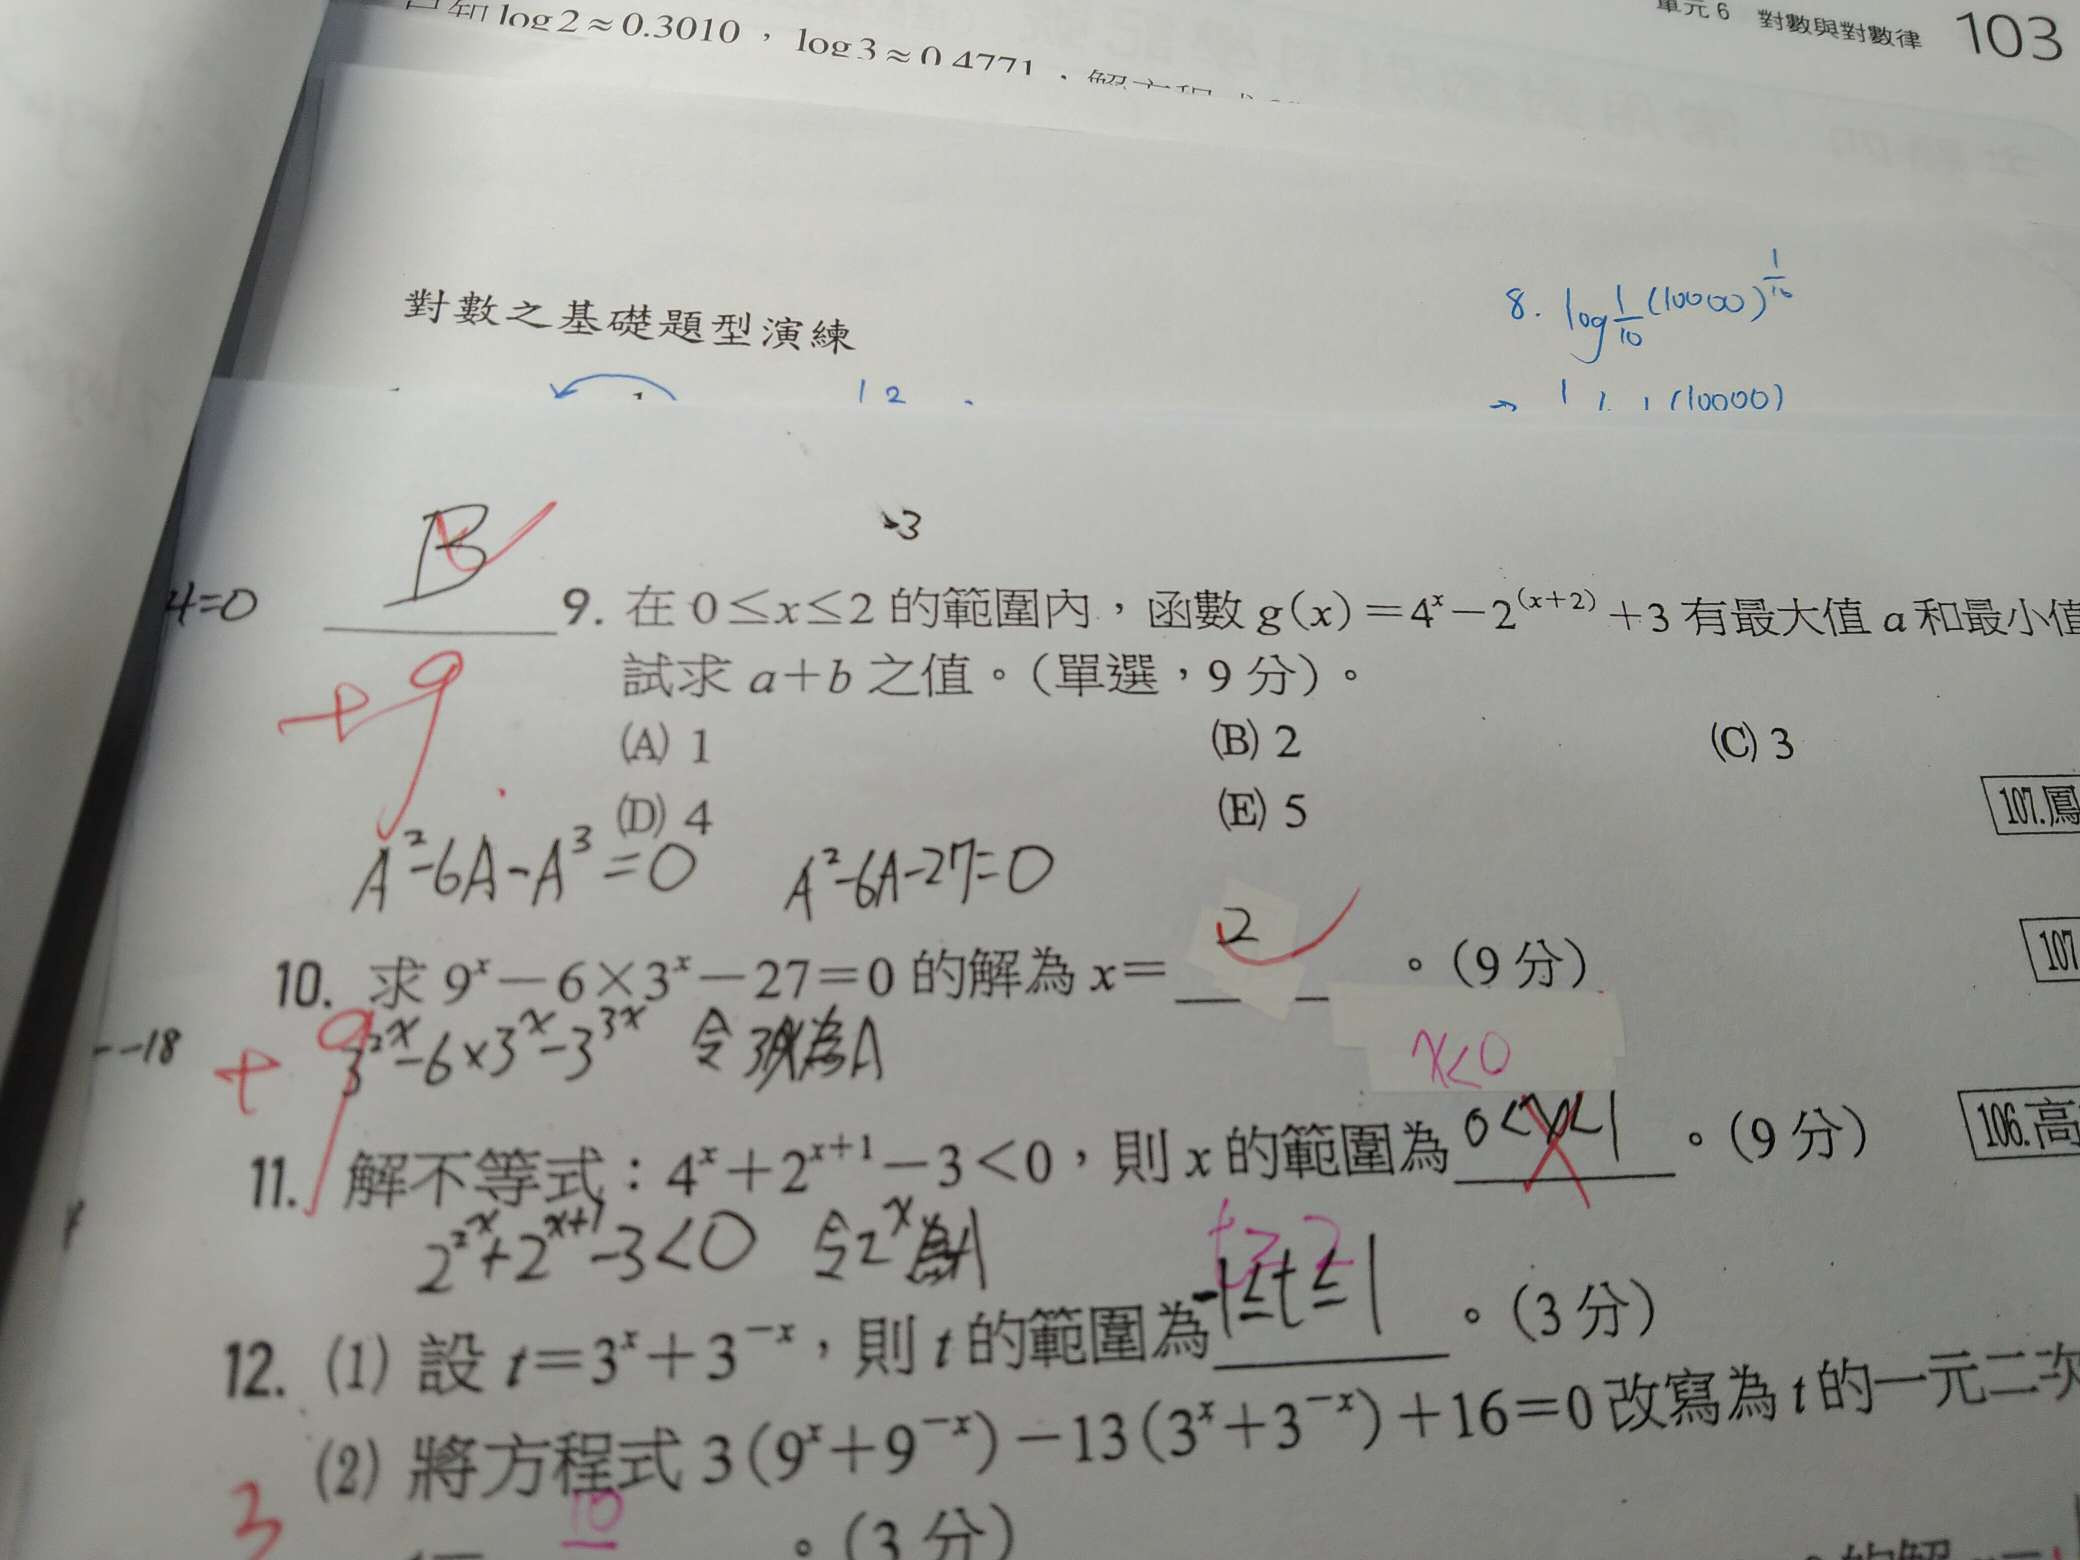 單元6 對數與對數律 103
已知 log 2≈0.3010，log 3≈0.4771，解方程式
對數之基礎題型演練
8. log 1/10 (10000)^1/10
1 2
(10000)
B
-3
4=0
9. 在 0≤x≤2 的範圍內，函數 g(x)=4^x−2^(x+2)+3 有最大值 a 和最小值
試求 a+b 之值。(單選，9 分)。
+9
(A) 1 (B) 2 (C) 3
(D) 4 (E) 5
107.鳳
A²-6A-A³=0 A²-6A-27=0
10. 求 9^x−6×3^x−27=0 的解為 x= 2 。(9 分)
107
+9
3^2x-6×3^x-3^3x 令3^x為A
--18
x<0
11. 解不等式：4^x+2^(x+1)−3<0，則 x 的範圍為 0<x<1 。(9 分)
106.高
2^2x+2^x+1-3<0 令2^x為A
t≥2
12. (1) 設 t=3^x+3^−x，則 t 的範圍為 -1≤t≤1 。(3 分)
(2) 將方程式 3(9^x+9^−x)−13(3^x+3^−x)+16=0 改寫為 t 的一元二次
3
10
。(3 分)
的解